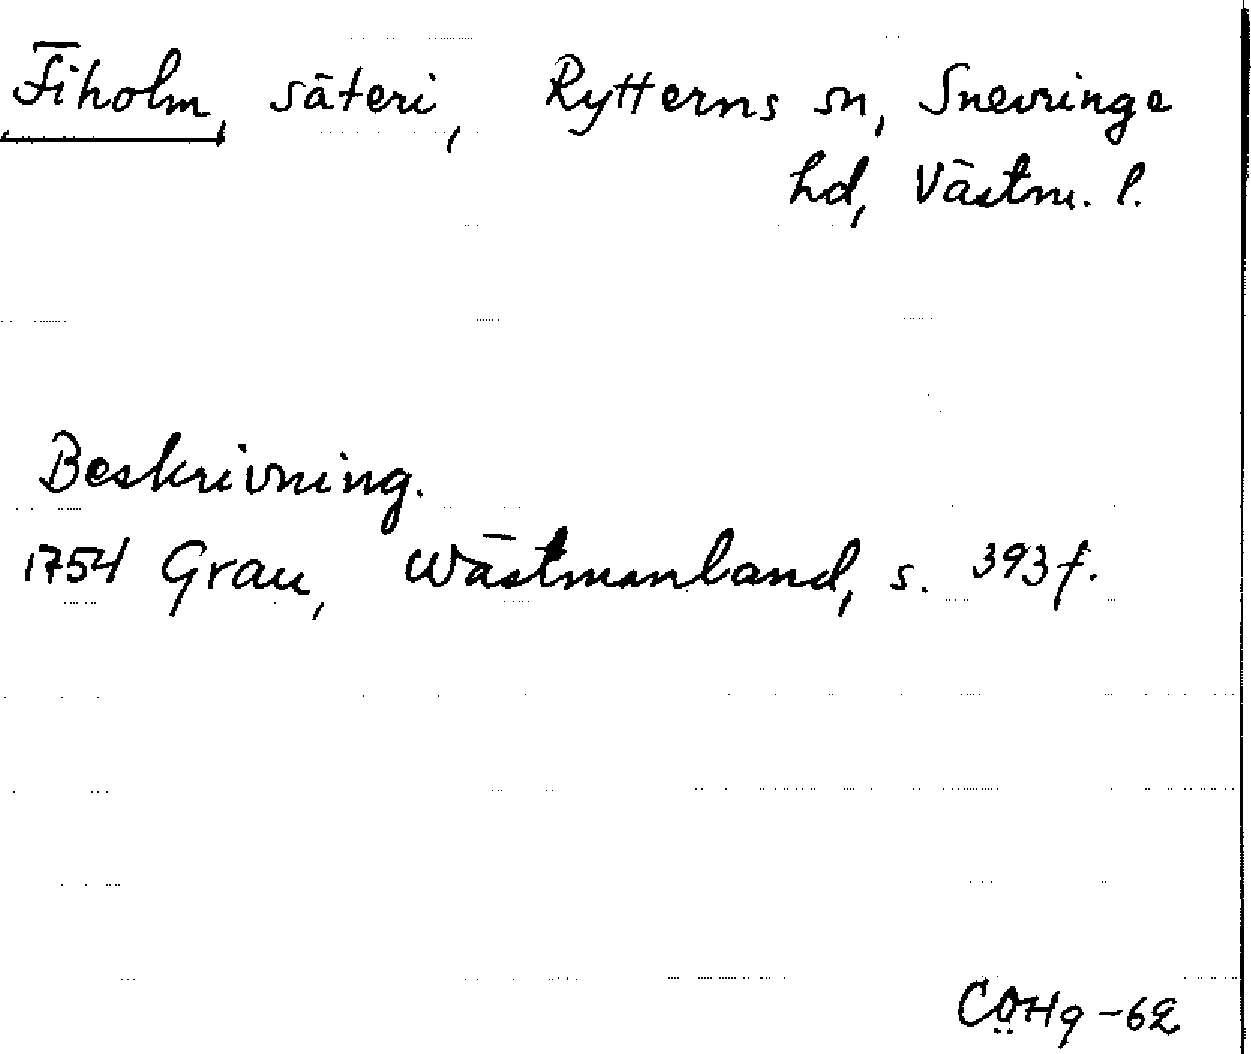 Fiholm, säteri, Rytterns sn, Snevringe
hd, Västm. l.
Beskrivning.
1754 Grau, Wästmanland, s. 393 f.
CÖHg-62